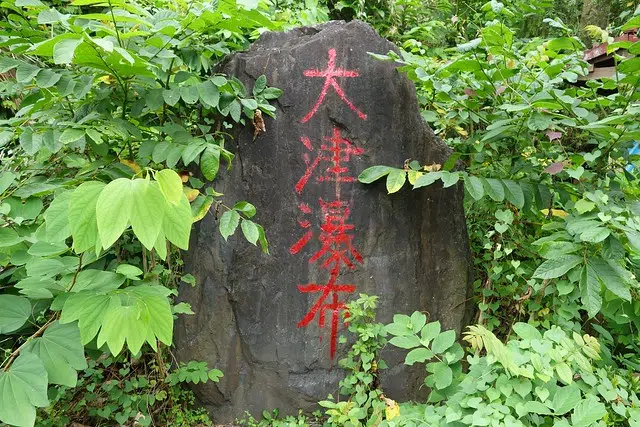 大津瀑布